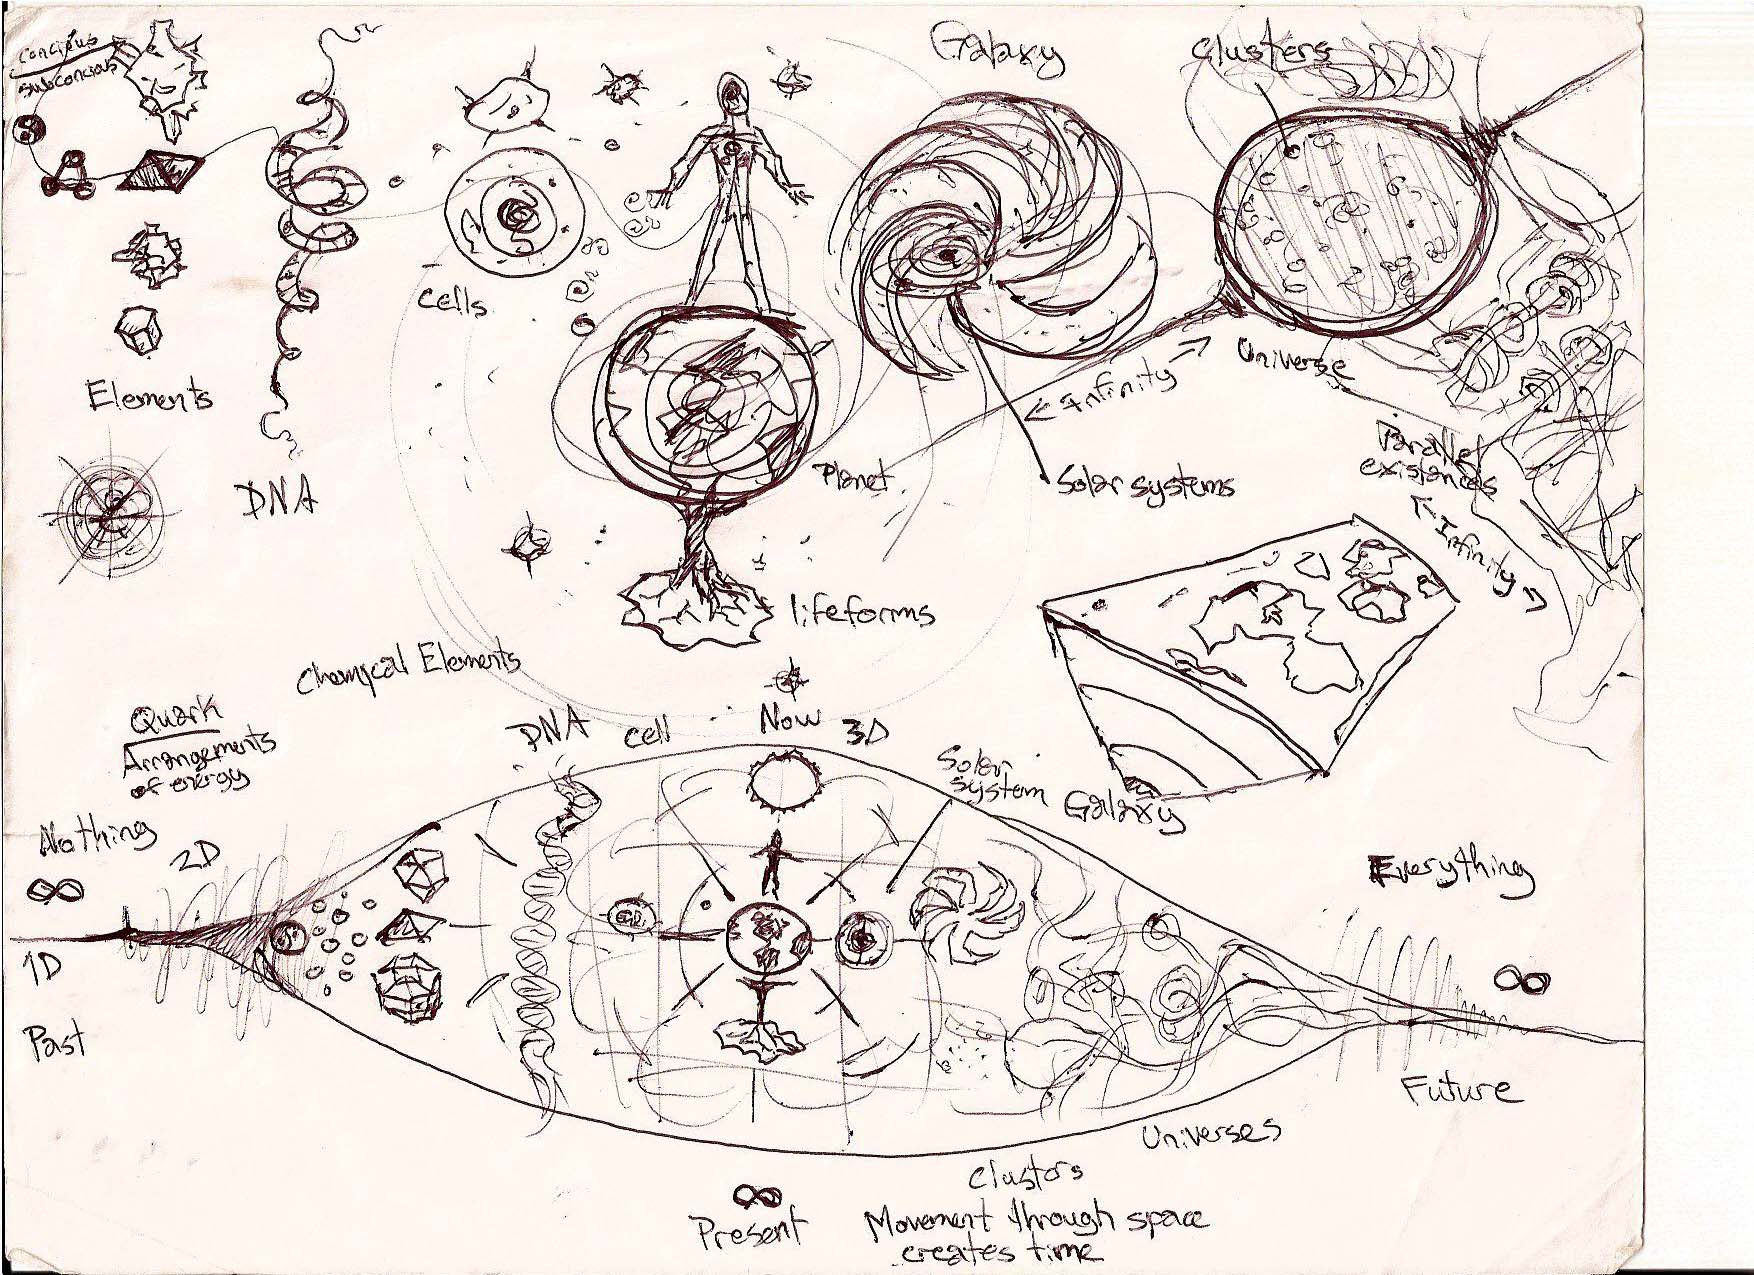 Concious
subconcious
Galaxy
Clusters
cells
Elements
DNA
Universe
← Infinity →
Planet
Solar systems
Parallel
existances
← Infinity →
lifeforms
Chemical Elements
Quark
Arrangements
of energy
DNA
cell
Now
3D
Solar
system
Galaxy
Nothing
2D
∞
1D
Past
Everything
∞
Future
Universes
Clustors
∞
Present
Movement through space
creates time